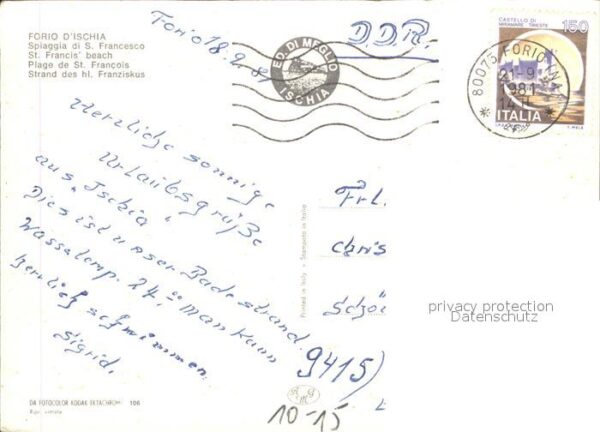 FORIO D'ISCHIA
Spiaggia di S. Francesco
St. Francis' beach
Plage de St. François
Strand des hl. Franziskus
Forio 18.9.
ED. DI MEGLIO
ISCHIA
D.D.R.
CASTELLO DI
MIRAMARE TRIESTE
150
ITALIA
80075 FORIO (NA)
21-9
1981
14
Herzliche sonnige
Urlaubsgrüße
aus "Ischia"
Dies ist unser Badestrand.
Wassertemp. 24° man kann
herrlich schwimmen.
Sigrid.
Printed in Italy - Stampato in Italia
Frl.
Chris
Schö
9415)
privacy protection
Datenschutz
DA FOTOCOLOR KODAK EKTACHROME 106
10-15